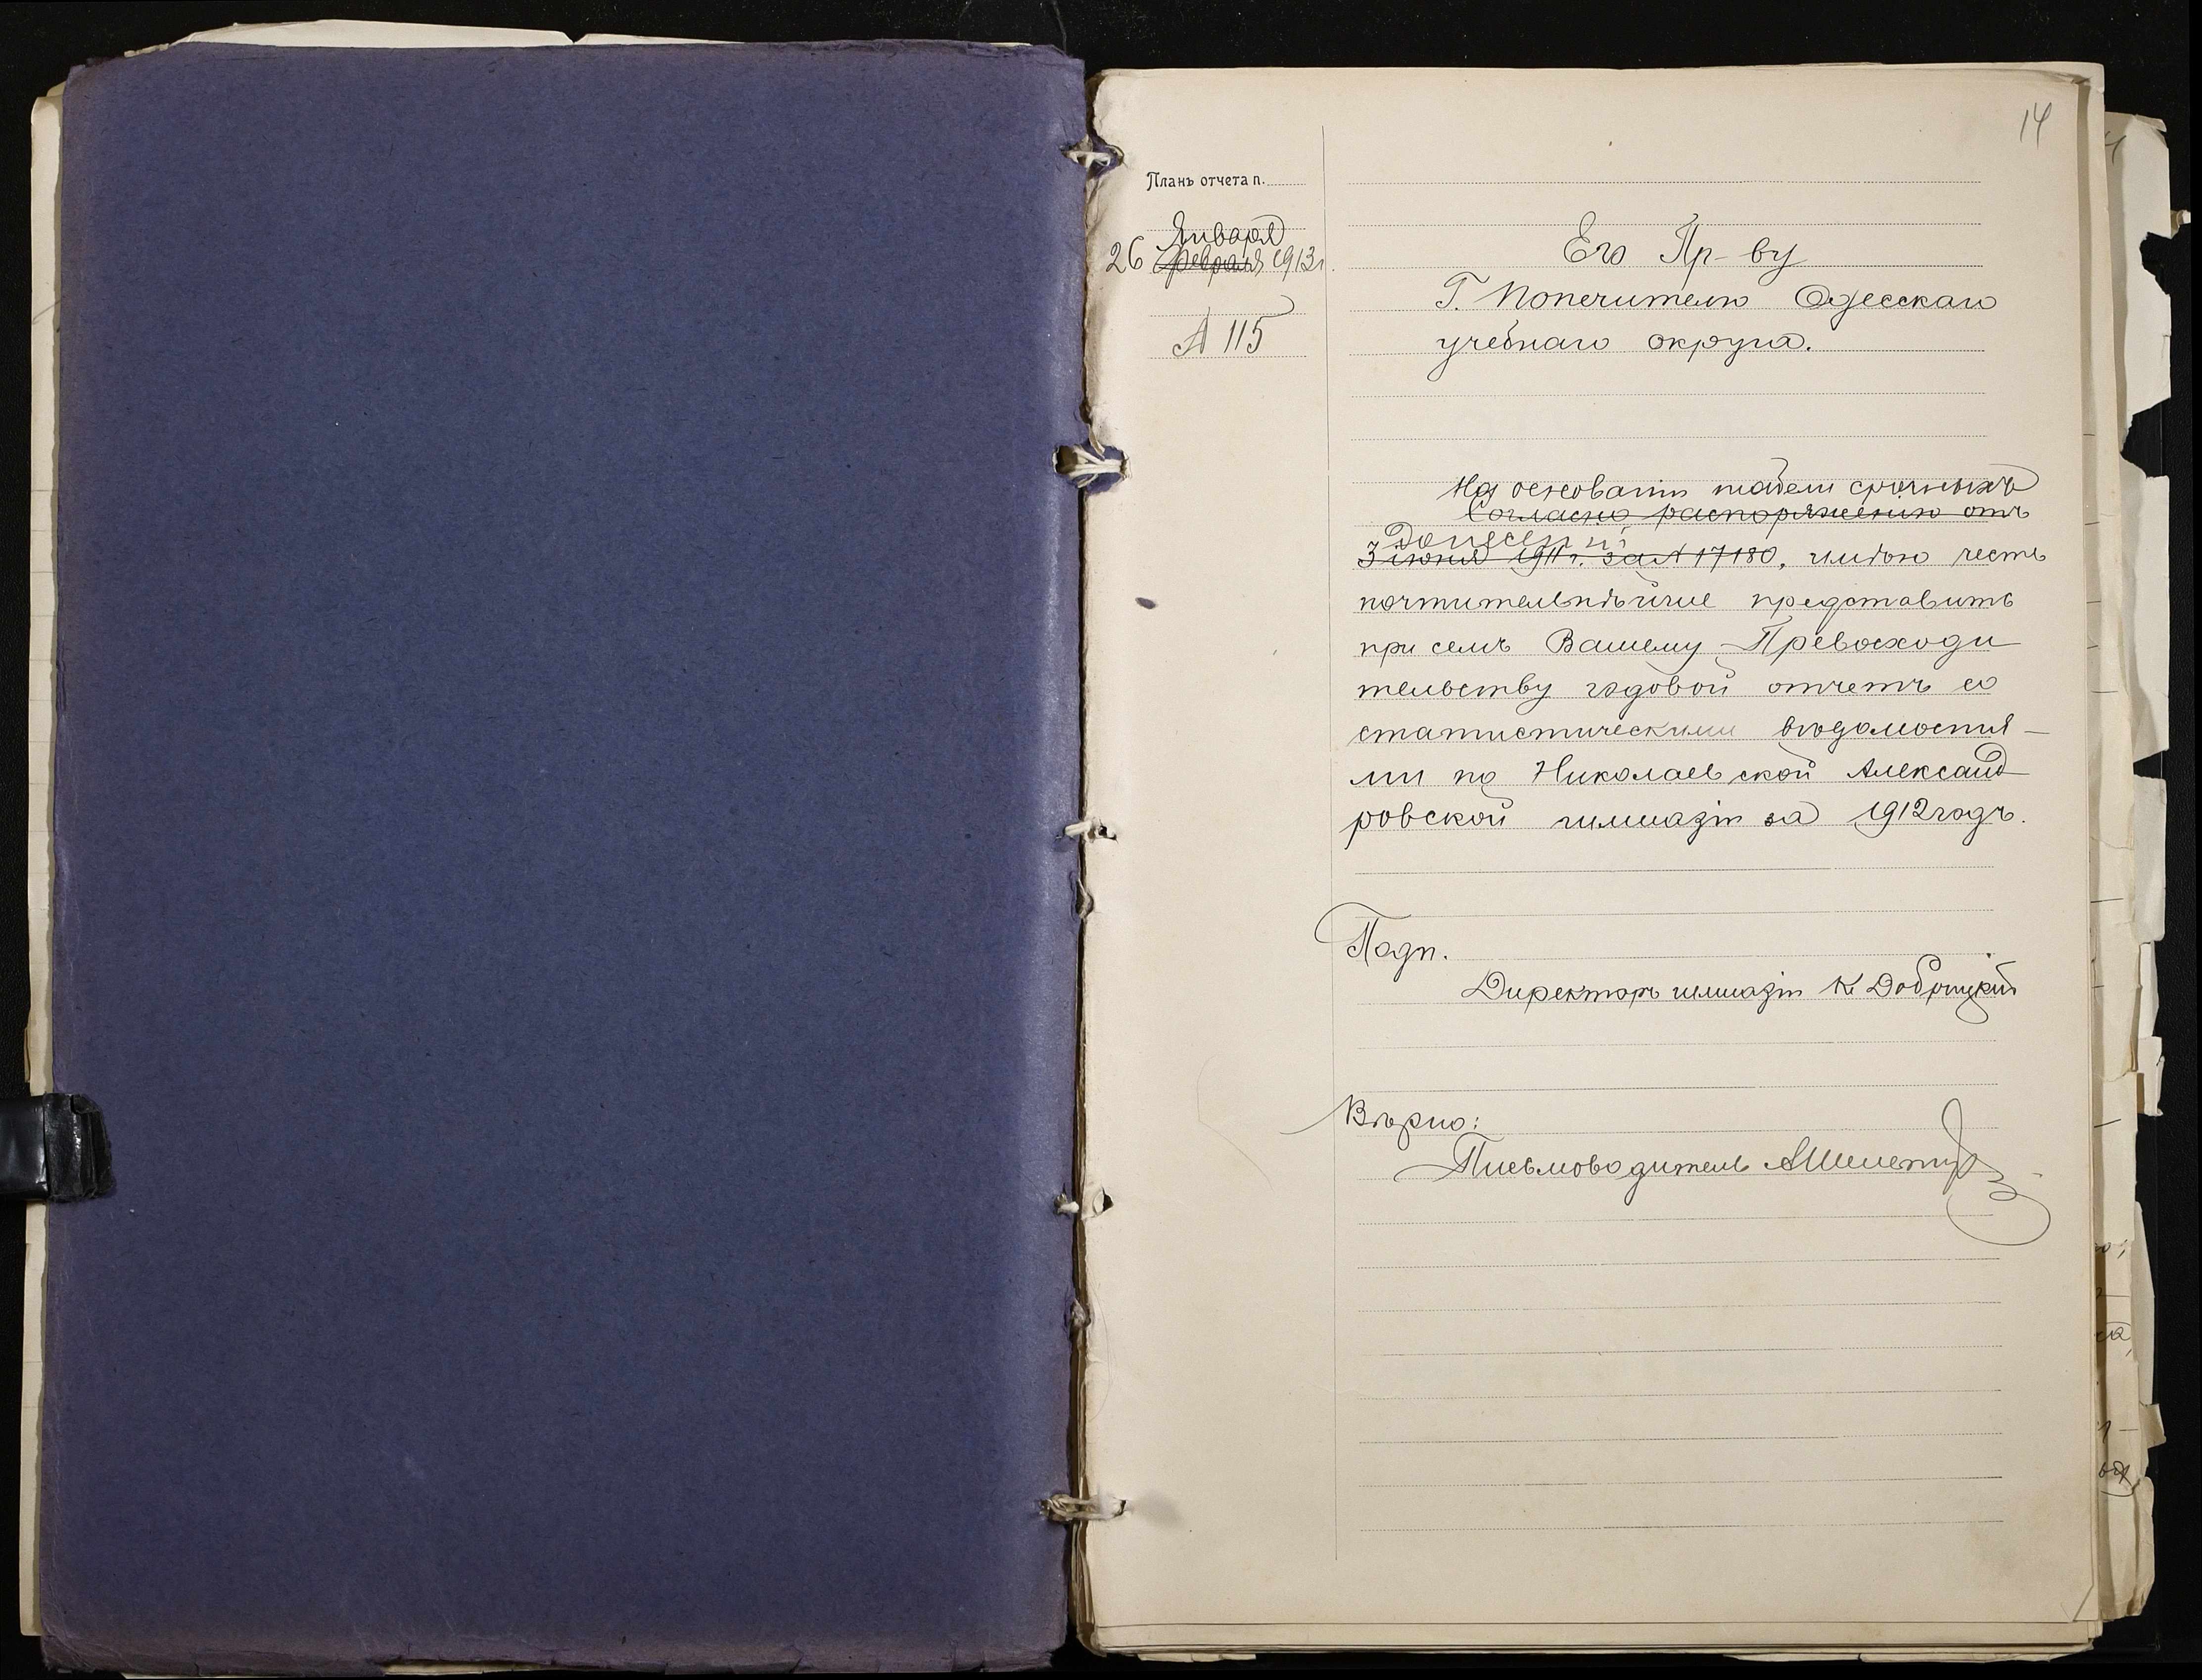 14
Планъ отчета п.
Января
26 Февраля 1913 г.
№ 115
Его Пр-ву
Г. Попечителю Одесскаго
учебнаго округа.
На основаніи табели срочныхъ
Согласно распоряженію отъ
донесеній
3 іюня 1911 г. за № 17180, имѣю честь
почтительнѣйше представить
при семъ Вашему Превосходи
тельству годовой отчетъ со
статистическими вѣдомостя-
ми по Николаевской Александ
ровской гимназіи за 1912 годъ.
Подп.
Директоръ гимназіи К. Добротскій
Вѣрно:
Письмоводитель